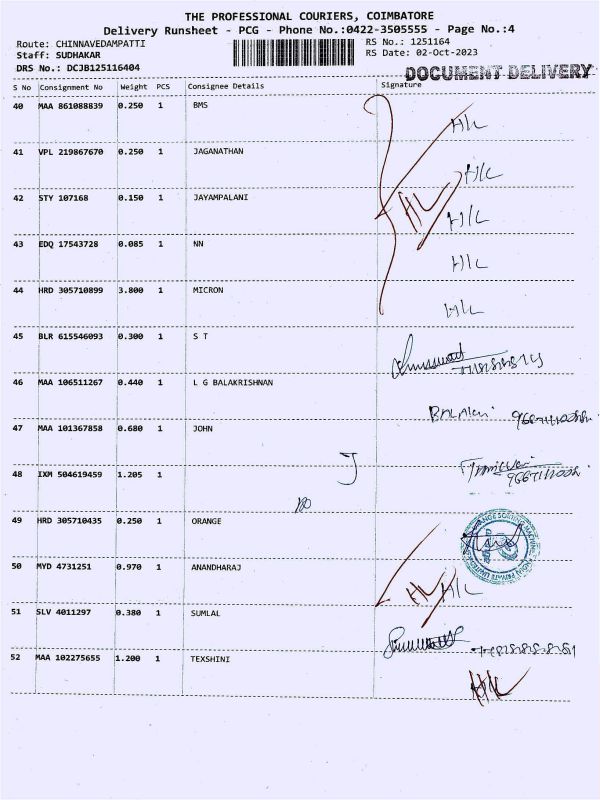 THE PROFESSIONAL COURIERS, COIMBATORE
Delivery Runsheet - PCG - Phone No.:0422-3505555 - Page No.:4
Route: CHINNAVEDAMPATTI
RS No.: 1251164
Staff: SUDHAKAR
RS Date: 02-Oct-2023
DRS No.: DCJB125116404
DOCUMENT DELIVERY
S No Consignment No Weight PCS Consignee Details Signature
40 MAA 861088839 0.250 1 BMS H/L
41 VPL 219867670 0.250 1 JAGANATHAN H/L
H/L
42 STY 107168 0.150 1 JAYAMPALANI H/L
43 EDQ 17543728 0.085 1 NN H/L
44 HRD 305710899 3.800 1 MICRON H/L
45 BLR 615546093 0.300 1 S T
46 MAA 106511267 0.440 1 L G BALAKRISHNAN
47 MAA 101367858 0.680 1 JOHN
J
48 IXM 504619459 1.205 1
49 HRD 305710435 0.250 1 ORANGE
50 MYD 4731251 0.970 1 ANANDHARAJ H/L H/L
51 SLV 4011297 0.380 1 SUMLAL
52 MAA 102275655 1.200 1 TEXSHINI H/L